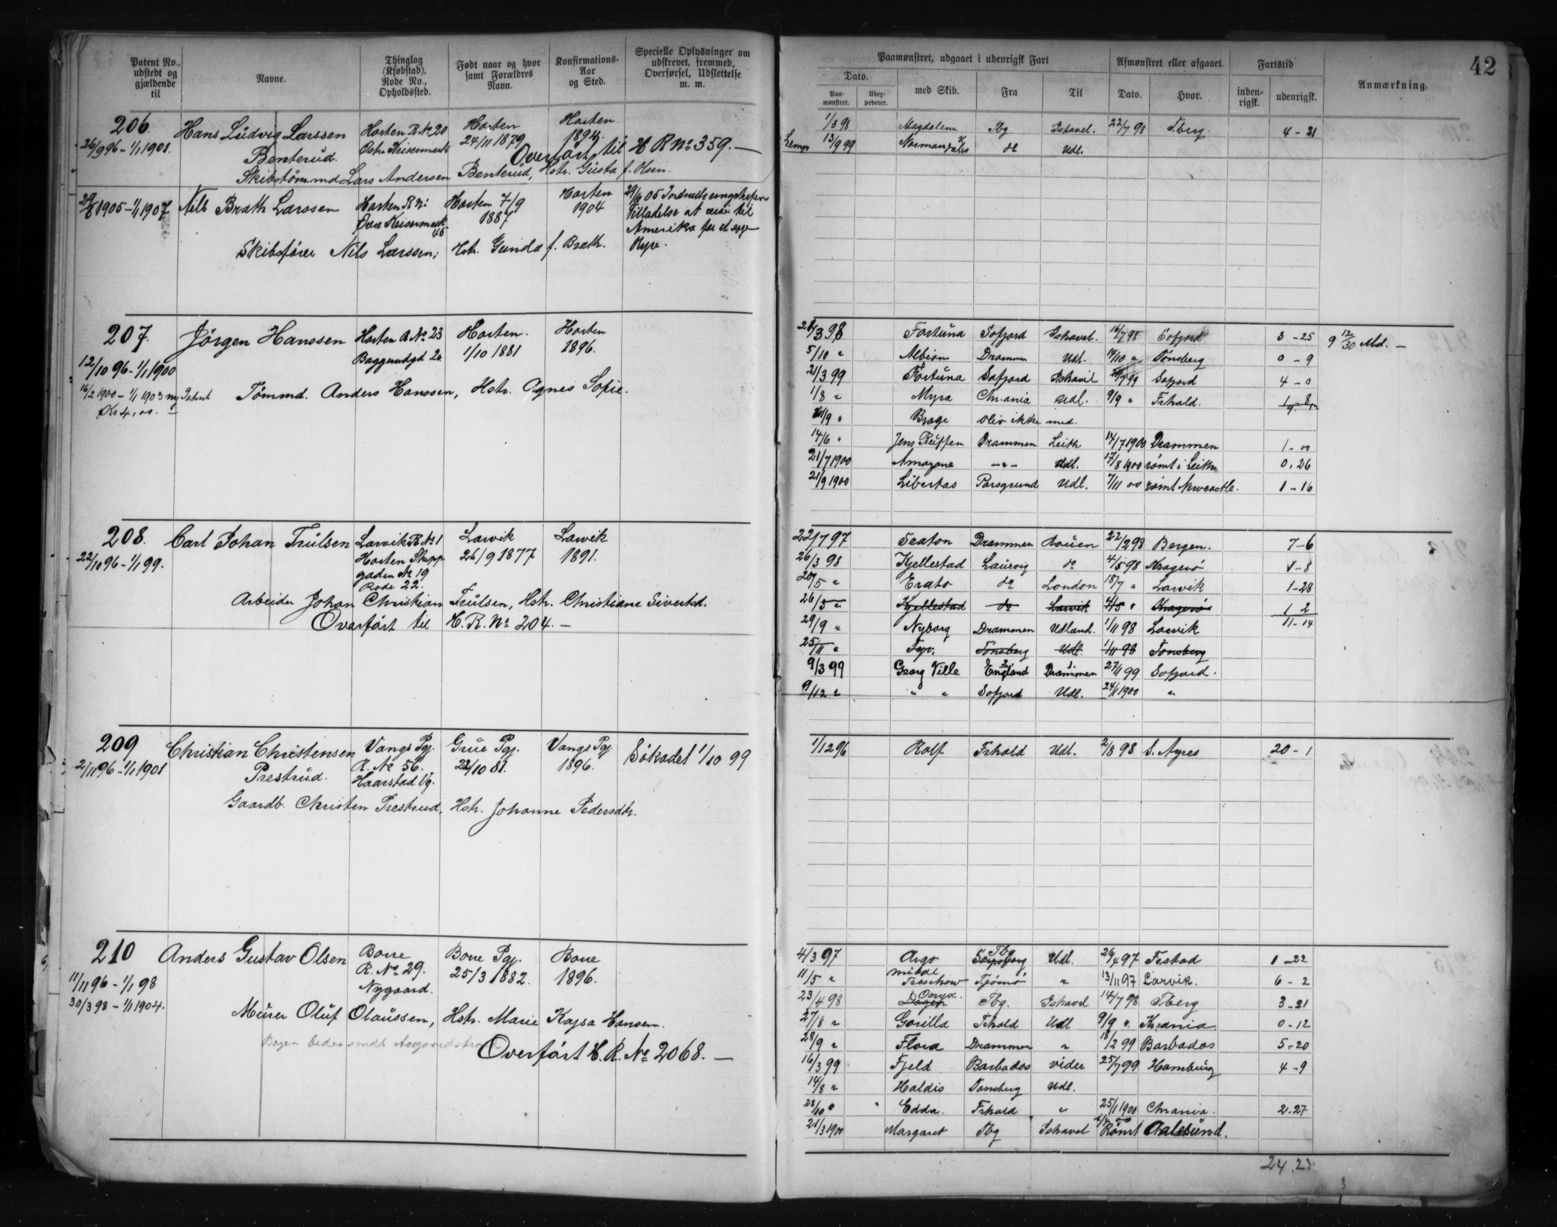 Patent No., udstedt og gjældende til
Navne.
Thinglag (Kjøbstad), Rode No., Opholdssted.
Født naar og hvor samt Forældres Navn.
Konfirmations-Aar og Sted.
Specielle Oplysninger om udskrevet, fremmed, Overførsel, Udslettelse m. m.
206
26/9 96 - 1/1 1901.
Hans Ludvig Larssen
Benterud.
Horten R. No 20
Horten
24/11 1879
Horten
1894.
Overført til H R No 359. —
Skibstømmd Lars Andersen Benterud, Hstr. Gusta f. Olsen.
1905 - 1/1 1907
Nils Brath Larssen
Horten R. No
Horten 7/9
1887
Horten
1904
Tilladelse at reise til
Amerika for et aar
Skibsfører Nils Larssen, Hstr. Gunda f. Brath.
207
12/10 96 - 1/1 1900
16/2 1900 - 1/1 1903 ny Patent
Jørgen Hanssen
Horten R. No 23
Baggeradgd 20
Horten.
1/10 1881
Horten
1896.
Tømmd. Anders Hanssen, Hstr. Agnes Sofie.
208
22/10 96 - 1/1 99.
Carl Johan Trulsen
Larvik R. No 1
Horten
gaden No 19
Rode 22.
Larvik
26/9 1877
Larvik
1891.
Arbeider Johan Christian Trulsen, Hstr. Christiane Sivertsd.
Overført til H. R. No 204. —
209
2/11 96 - 1/1 1901
Christian Christensen
Prestrud.
Vangs Pgj.
R. No 56.
Haarstad Vg.
Grue Pgj.
22/10 81.
Vangs Pgj
1896.
Søkadet 1/10 99
Gaardb. Christen Prestrud, Hstr. Johanne Pedersdtr.
210
11/11 96 - 1/1 98
30/3 98 - 1/1 1904.
Anders Gustav Olsen
Borre
R. No 29.
Nygaard.
Borre Pgj.
25/3 1882.
Borre
1896.
Murer Oluf Olaussen, Hstr. Marie Kajsa Hansen.
Overført H. R. No 2068. —
42
Paamønstret, udgaaet i udenrigsk Fart
Afmønstret eller afgaaet.
Fartstid
Anmærkning.
Dato.
Paa-mønstret.
med Skib.
Fra
Til
Dato.
Hvor.
inden-rigsk.
udenrigsk.
1/3 98 Magdalena Tbg Ishavet. 22/7 98 Tberg. 4 - 21
13/9 99 do Udl.
3 98 Fortuna Sofjord Ishavet. 16/7 98 Sofjord 3 - 25
5/10 " Albion Drammen Udl. Tønsberg 0 - 9
21/3 99 Fortuna Sofjord Ishavet 99 Sofjord 4 - 0
1/8 " Myra Chr.ania Udl. 9/9 " Frhald.
9 " Brage blev ikke med.
14/6 " Drammen Leith 14/7 1900 Drammen 1 - 00
21/7 1900 Amazone —"— Udl. 17/8 1900 rømt i Leith 0. 26
21/9 1900 Libertas Porsgrund Udl. 7/11 00 rømt Newcastle. 1 - 16
22/7 97 Seaton Drammen Rouen 22/2 98 Bergen. 7 - 6
26/3 98 Kjellestad Laurvig do 4/5 98 Kragerø 1 - 8
20/5 " Erato do London 18/7 " Larvik 1 - 28
26/3 " Kjellestad do Larvik " Kragerø 1 2
29/9 " Nyborg Drammen Udland. 1/11 98 Larvik 11 - 14
25/11 " Tønsberg Udl 1/11 98 Tønsberg
9/3 99 Georg Ville England Drammen 99 Sofjord.
9/12 " " " Sofjord Udl. 24/1 1900 "
1/12 96 Rolf Frhald Udl. 2/8 98 B. Ayres 20 - 1
4/3 97 Argo Tbg Udl. 97 Frstad 1 - 22
11/5 " Treschow Tjømø " 13/11 97 Larvik. 6 - 2
23/4 98 Tbg. Ishavet 14/7 98 Tberg 3 - 21
27/8 " Gorilla Frhald Udl 9/9 ". Kr.ania 0 - 12
28/9 " Flora Drammen " 18/2 99 Barbados 5 - 20
16/3 99 Fjeld Barbados vider 25/7 99 Hamburg 4 - 9
14/8 " Haldis Tønsberg Udl.
28/10 " Edda Frhald " 25/1 1900 Chr.ania. 2. 27
21/3 1900 Margaret Tbg Ishavet Rømt Aalesund.
24. 23.